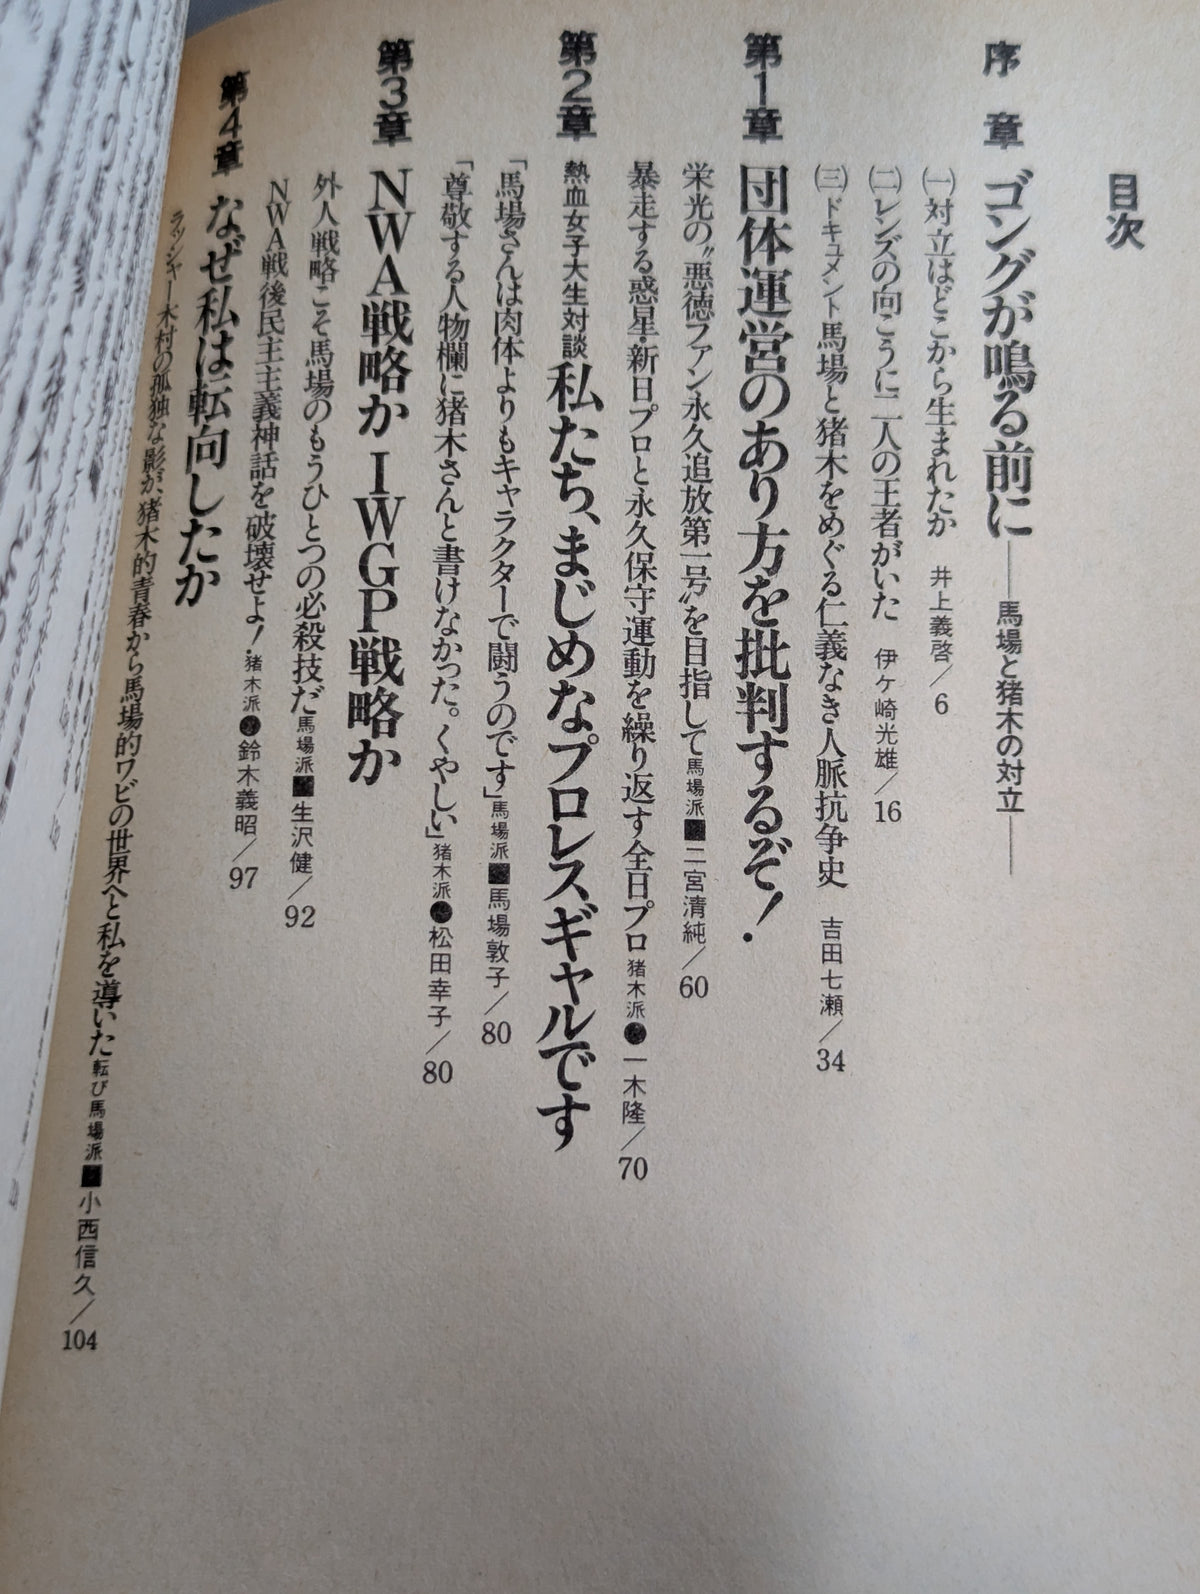 目次
序章 ゴングが鳴る前に──馬場と猪木の対立──
㈠対立はどこから生まれたか 井上義啓／6
㈡レンズの向こうに二人の王者がいた 伊ケ崎光雄／16
㈢ドキュメント馬場と猪木をめぐる仁義なき人脈抗争史 吉田七瀬／34
第1章 団体運営のあり方を批判するぞ！
栄光の〝悪徳ファン永久追放第一号〟を目指して 馬場派■二宮清純／60
暴走する惑星・新日プロと永久保守運動を繰り返す全日プロ 猪木派●一木隆／70
第2章 熱血女子大生対談 私たち、まじめなプロレスギャルです
「馬場さんは肉体よりもキャラクターで闘うのです」馬場派■馬場敦子／80
「尊敬する人物欄に猪木さんと書けなかった。くやしい」猪木派●松田幸子／80
第3章 NWA戦略か IWGP戦略か
外人戦略こそ馬場のもうひとつの必殺技だ 馬場派■生沢健／92
NWA戦後民主主義神話を破壊せよ！ 猪木派●鈴木義昭／97
第4章 なぜ私は転向したか
ラッシャー木村の孤独な影が、猪木的青春から馬場的ワビの世界へと私を導いた 転び馬場派■小西信久／104